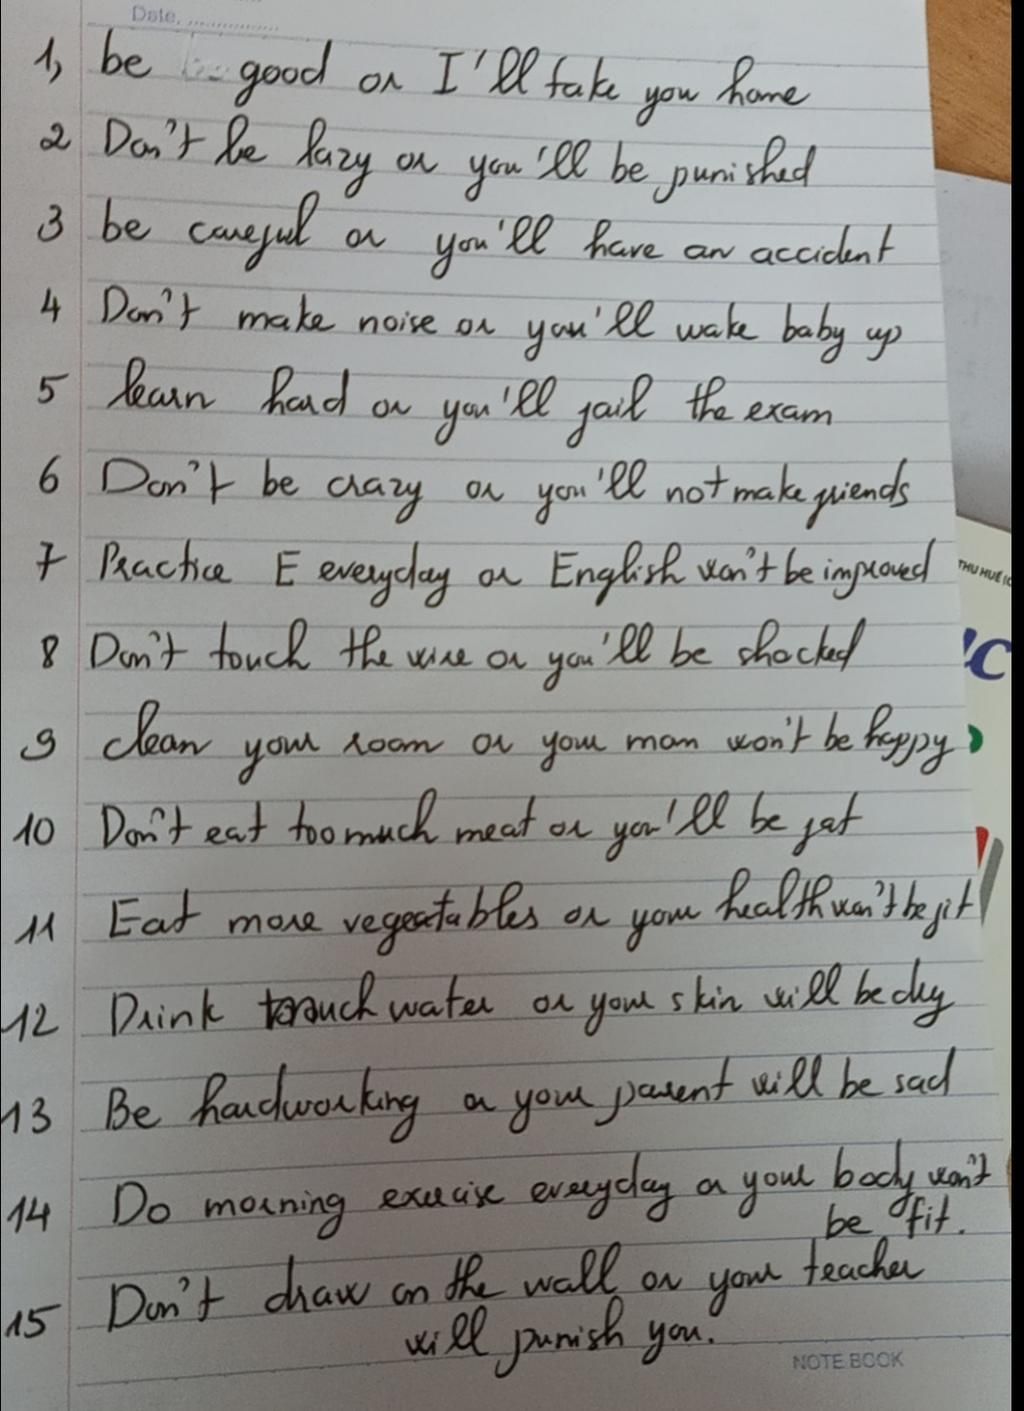 Date, ....................
1, be good or I'll take you home
2 Don't be lazy or you'll be punished
3 be careful or you'll have an accident
4 Don't make noise or you'll wake baby up
5 learn hard or you'll fail the exam
6 Don't be crazy or you'll not make friends
7 Practice E everyday or English won't be improved
THU HUẾ
8 Don't touch the wire or you'll be shocked
9 clean your room or your mom won't be happy
10 Don't eat too much meat or you'll be fat
11 Eat more vegeatables or your health won't be fit
12 Drink much water or your skin will be dry
13 Be hardworking or your parent will be sad
14 Do morning exercise everyday or your body won't
be fit.
15 Don't draw on the wall or your teacher
will punish you.
NOTE BOOK